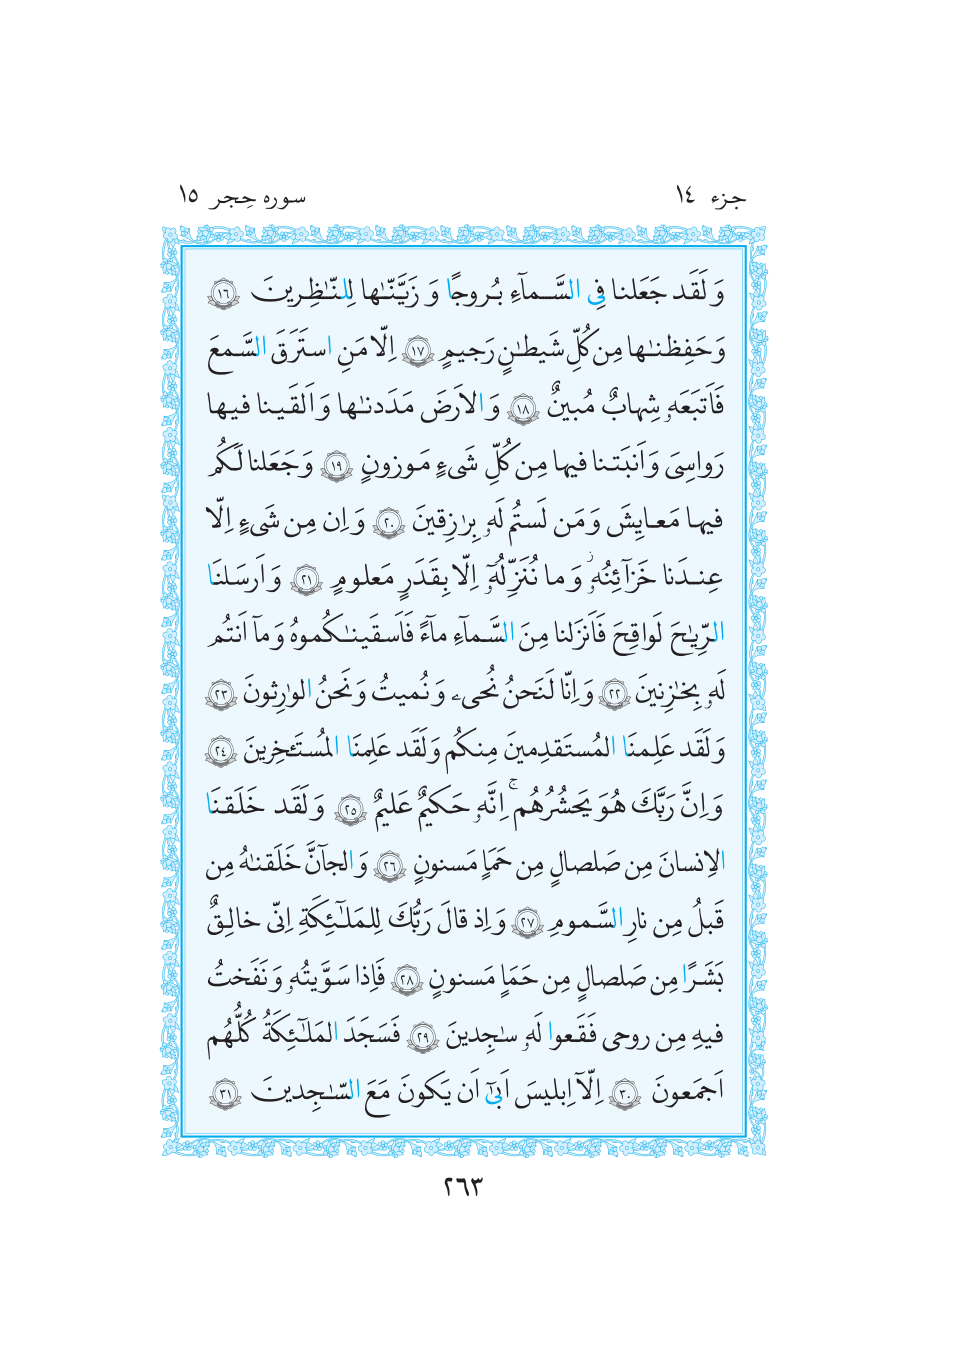 جزء ١٤
سوره حِجر ١٥
وَ لَقَد جَعَلنا فِى السَّمآءِ بُروجًا وَ زَيَّنّٰها لِلنّٰظِرينَ ١٦
وَحَفِظنٰها مِن كُلِّ شَيطٰنٍ رَجيمٍ ١٧ اِلّا مَنِ استَرَقَ السَّمعَ
فَاَتبَعَهٗ شِهابٌ مُبينٌ ١٨ وَ الاَرضَ مَدَدنٰها وَ اَلقَينا فيها
رَواسِىَ وَ اَنبَتنا فيها مِن كُلِّ شَىءٍ مَوزونٍ ١٩ وَ جَعَلنا لَكُم
فيها مَعايِشَ وَ مَن لَستُم لَهٗ بِرٰزِقينَ ٢٠ وَ اِن مِن شَىءٍ اِلّا
عِندَنا خَزآئِنُهٗ وَ ما نُنَزِّلُهٗٓ اِلّا بِقَدَرٍ مَعلومٍ ٢١ وَ اَرسَلنَا
الرِّيٰحَ لَواقِحَ فَاَنزَلنا مِنَ السَّمآءِ مآءً فَاَسقَينٰكُموهُ وَ مآ اَنتُم
لَهٗ بِخٰزِنينَ ٢٢ وَ اِنّا لَنَحنُ نُحىۦ وَ نُميتُ وَ نَحنُ الوٰرِثونَ ٢٣
وَ لَقَد عَلِمنَا المُستَقدِمينَ مِنكُم وَ لَقَد عَلِمنَا المُستَـٔخِرينَ ٢٤
وَ اِنَّ رَبَّكَ هُوَ يَحشُرُهُمۚ اِنَّهٗ حَكيمٌ عَليمٌ ٢٥ وَ لَقَد خَلَقنَا
الاِنسانَ مِن صَلصالٍ مِن حَمَاٍ مَسنونٍ ٢٦ وَ الجآنَّ خَلَقنٰهُ مِن
قَبلُ مِن نارِ السَّمومِ ٢٧ وَ اِذ قالَ رَبُّكَ لِلمَلٰٓئِكَةِ اِنّى خالِقٌ
بَشَرًا مِن صَلصالٍ مِن حَمَاٍ مَسنونٍ ٢٨ فَاِذا سَوَّيتُهٗ وَ نَفَختُ
فيهِ مِن روحى فَقَعوا لَهٗ سٰجِدينَ ٢٩ فَسَجَدَ المَلٰٓئِكَةُ كُلُّهُم
اَجمَعونَ ٣٠ اِلّآ اِبليسَ اَبىٰٓ اَن يَكونَ مَعَ السّٰجِدينَ ٣١
٢٦٣